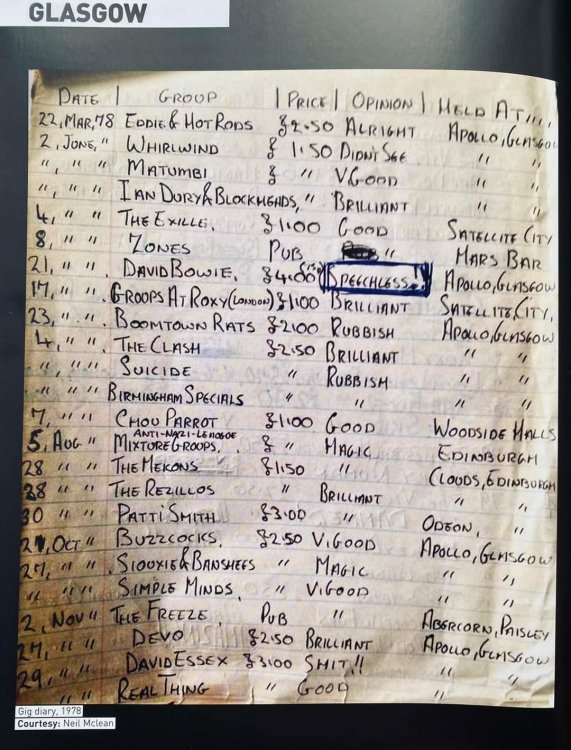 GLASGOW
DATE | GROUP | PRICE | OPINION | HELD AT,,,,
22, MAR,78 EDDIE & HOT RODS £2.50 ALRIGHT APOLLO, GLASGOW
2, JUNE, " WHIRLWIND £ 1.50 DIDN'T SEE " "
", ", " MATUMBI £ " V.GOOD " "
", ", " IAN DURY & BLOCKHEADS, " BRILLIANT " "
4, " " THE EXILLE, £1.00 GOOD SATELLITE CITY
8, " " ZONES PUB " MARS BAR
21, " " DAVID BOWIE, £4.00 SPEECHLESS..!! APOLLO, GLASGOW
17, " " GROUPS AT ROXY (LONDON) £1.00 BRILLIANT SATELLITE CITY,
23, " " BOOMTOWN RATS £2.00 RUBBISH APOLLO, GLASGOW
4, " " THE CLASH £2.50 BRILLIANT " "
", " " SUICIDE " RUBBISH " "
" " " BIRMINGHAM SPECIALS " " " "
7, " " CHOU PARROT £1.00 GOOD WOODSIDE HALLS
5, AUG " ANTI-NAZI-LEAGUE MIXTURE GROUPS, £ " MAGIC EDINBURGH
28 " " THE MEKONS £1.50 " CLOUDS, EDINBURGH
28 " " THE REZILLOS " BRILLIANT " "
30 " " PATTI SMITH £3.00 " ODEON, "
27, OCT " BUZZCOCKS, £2.50 V.GOOD APOLLO, GLASGOW
27, " " SIOUXIE & BANSHEES " MAGIC " "
" " " SIMPLE MINDS, " V.GOOD " "
2, NOV " THE FREEZE, PUB " ABERCORN, PAISLEY
27, " " DEVO £2.50 BRILLIANT APOLLO, GLASGOW
29, " " DAVID ESSEX £3.00 SHIT!! " "
" " REAL THING " GOOD " "
Gig diary, 1978
Courtesy: Neil Mclean